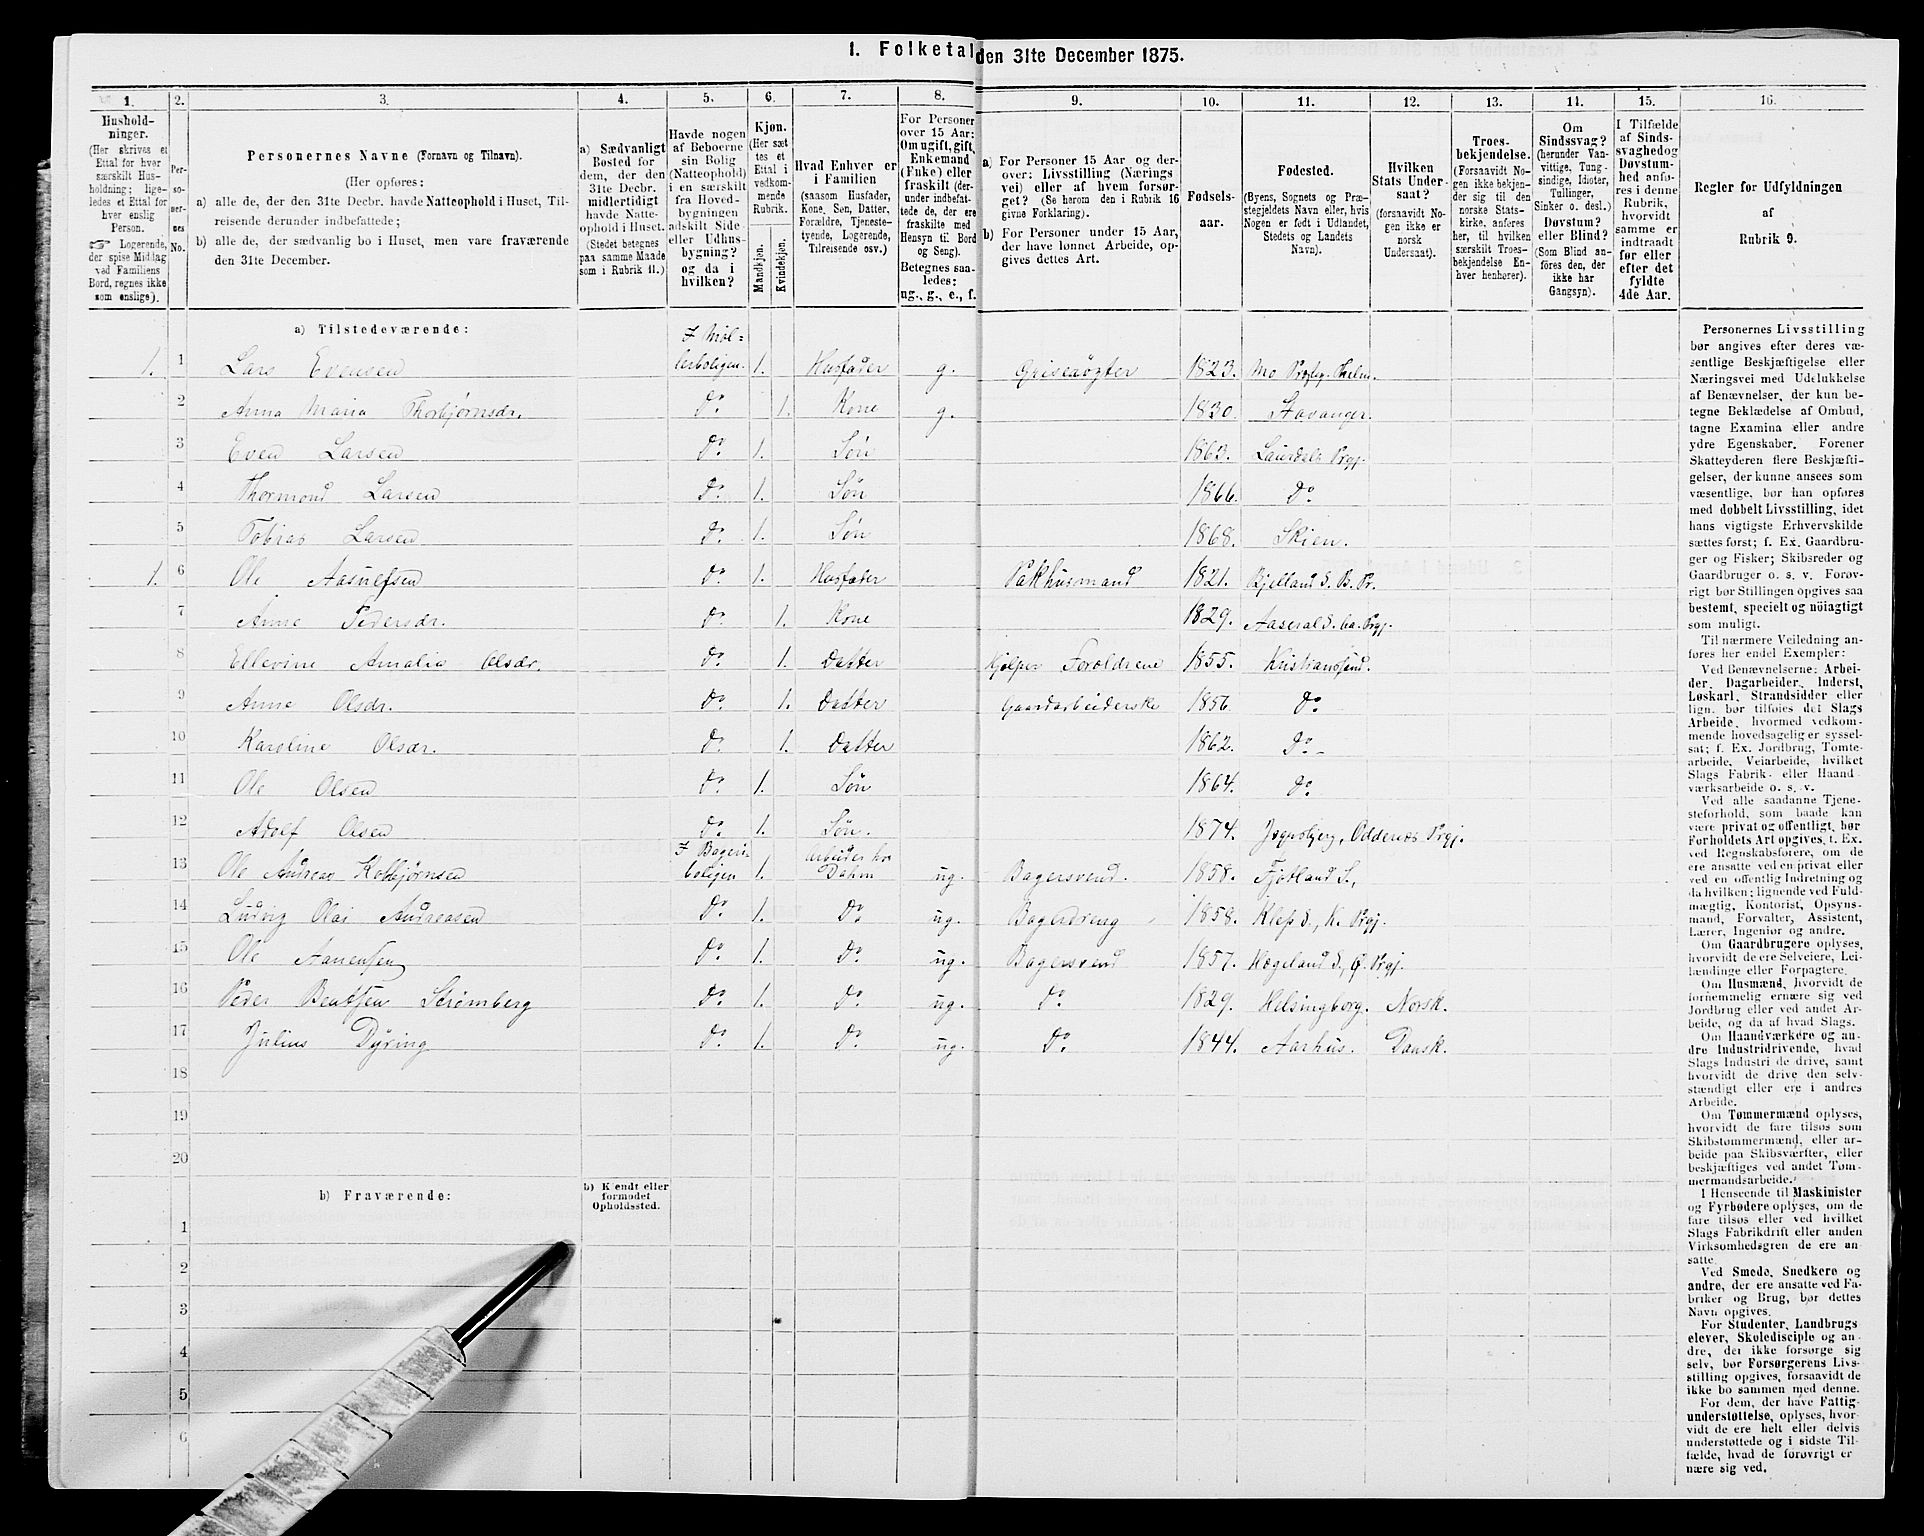 1. Folketal den 31te December 1875.
1. 2. 3. 4. 5. 6. 7. 8. 9. 10. 11. 12. 13. 14. 15. 16.
Hushold-
ninger.
(Her skrives et
Ettal for hver
særskilt Hus-
holdning; lige-
ledes et Ettal for
hver enslig
Person.
☞ Logerende,
der spise Middag
ved Familiens
Bord, regnes ikke
som enslige).
Per-
so-
ner-
nes
No.
Personernes Navne (Fornavn og Tilnavn).
(Her opføres:
a) alle de, der den 31te Decbr. havde Natteophold i Huset, Til-
reisende derunder indbefattede;
b) alle de, der sædvanlig bo i Huset, men vare fraværende
den 31te December.
a) Sædvanligt
Bosted for
dem, der den
31te Decbr.
midlertidigt
havde Natte-
ophold i Huset.
(Stedet betegnes
paa samme Maade
som i Rubrik 11.)
Havde nogen
af Beboerne
sin Bolig
(Natteophold)
i en særskilt
fra Hoved-
bygningen
adskilt Side-
eller Udhus-
bygning?
og da i
hvilken?
Kjøn.
(Her sæt-
tes et
Ettal i
vedkom-
mende
Rubrik.
Mandkjøn.
Kvindekjøn.
Hvad Enhver er
i Familien
(saasom Husfader,
Kone, Søn, Datter,
Forældre, Tjeneste-
tyende, Logerende,
Tilreisende osv.)
For Personer
over 15 Aar:
Om ugift, gift,
Enkemand
(Enke) eller
fraskilt (der-
under indbefat-
tede de, der ere
fraskilte med
Hensyn til Bord
og Seng).
Betegnes saa-
ledes:
ug., g., e., f.
a) For Personer 15 Aar og der-
over: Livsstilling (Nærings-
vei) eller af hvem forsør-
get? (Se herom den i Rubrik 16
givne Forklaring).
b) For Personer under 15 Aar,
der have lønnet Arbeide, op-
gives dettes Art.
Fødsels-
aar.
Fødested.
(Byens, Sognets og Præ-
stegjeldets Navn eller, hvis
Nogen er født i Udlandet,
Stedets og Landets
Navn).
Hvilken
Stats Under-
saat?
(forsaavidt No-
gen ikke er
norsk
Undersaat).
Troes-
bekjendelse.
(Forsaavidt No-
gen ikke bekjen-
der sig til den
norske Stats-
kirke, anføres
her, til hvilken
særskilt Troes-
bekjendelse En-
hver henhører).
Om
Sindssvag?
(herunder Van-
vittige, Tung-
sindige, Idioter,
Tullinger,
Sinker o. desl.)
Døvstum?
eller Blind?
(Som Blind an-
føres den, der
ikke har
Gangsyn).
I Tilfælde
af Sinds-
svaghed og
Døvstum-
hed anfø-
res i denne
Rubrik,
hvorvidt
samme er
indtraadt
før eller
efter det
fyldte
4de Aar.
Regler for Udfyldningen
af
Rubrik 9.
a) Tilstedeværende:
1. 1 Lars Evensen I Møllerboligen. 1. Husfader g. 1823. Mo
2 Anna Maria Thorbjørnsdr. Do. 1. Kone g. 1830. Stavanger.
3 Even Larsen Do. 1. Søn 1863. Laurdals Prgj.
4 Thormond Larsen Do. 1. Søn 1866. Do.
5 Tobias Larsen Do. 1. Søn 1868. Skien.
1. 6 Ole Aasulfsen Do. 1. Husfader Pakhusmand 1821. Bjelland S. B. Pr.
7 Anne Pedersdr. Do. 1. Kone 1829. Aaseral S. Prgj.
8 Ellevine Amalia Olsdr. Do. 1. Datter Hjelper Forældrene 1855. Kristianssand.
9 Anne Olsdr. Do. 1. Datter Gaardarbeiderske 1856. Do.
10 Karoline Olsdr. Do. 1. Datter 1862. Do.
11 Ole Olsen Do. 1. Søn 1864. Do.
12 Adolf Olsen Do. 1. Søn. 1874. Oddernæs Prgj.
13 Ole Andreas Kolbjørnsen I Bageriboligen 1. Arbeider hos Dahm ug. Bagersvend. 1858. Fjotland S.,
14 Ludvig Olai Andreasen Do. 1. Do. ug. Bagerdreng 1858. Klep S., K. Prgj.
15 Ole Aanensen Do. 1. Do. ug. Bagersvend 1857. Hægeland S., Ø. Prgj.
16 Peder Bentsen Strømberg Do. 1. Do. ug. Do. 1829. Helsingborg. Norsk.
17 Julius Dyring Do. 1. Do. ug. Do. 1844. Aarhus. Dansk.
18
19
20
b) Fraværende:
b) Kjendt eller
formodet
Opholdssted.
1
2
3
4
5
6
Personernes Livsstilling
bør angives efter deres væ-
sentlige Beskjæftigelse eller
Næringsvei med Udelukkelse
af Benævnelser, der kun be-
tegne Beklædelse af Ombud,
tagne Examina eller andre
ydre Egenskaber. Forener
Skatteyderen flere Beskjæfti-
gelser, der kunne ansees som
væsentlige, bør han opføres
med dobbelt Livsstilling, idet
hans vigtigste Erhvervskilde
sættes først; f. Ex. Gaardbru-
ger og Fisker; Skibsreder og
Gaardbruger o. s. v. Forøv-
rigt bør Stillingen opgives saa
bestemt, specielt og nöiagtigt
som muligt.
Til nærmere Veiledning an-
føres her endel Exempler:
Ved Benævnelserne: Arbei-
der, Dagarbeider, Inderst,
Løskarl, Strandsidder eller
lign. bør tilføies det Slags
Arbeide, hvormed vedkom-
mende hovedsagelig er syssel-
sat; f. Ex. Jordbrug, Tomte-
arbeide, Veiarbeide, hvilket
Slags Fabrik- eller Haand-
værksarbeide o. s. v.
Ved alle saadanne Tjene-
steforhold, som baade kan
være privat og offentligt, bør
Forholdets Art opgives, f. Ex.
ved Regnskabsførere, om de
ere ansatte ved en privat eller
ved en offentlig Indretning og
da hvilken; lignende ved Fuld-
mægtig, Kontorist, Opsyns-
mand, Forvalter, Assistent,
Lærer, Ingeniør og andre.
Om Gaardbrugere oplyses,
hvorvidt de ere Selveiere, Lei-
lændinge eller Forpagtere.
Om Husmænd, hvorvidt de
fornemmelig ernære sig ved
Jordbrug eller ved andet Ar-
beide, og da af hvad Slags.
Om Haandværkere og an-
dre Industridrivende, hvad
Slags Industri de drive, samt
hvorvidt de drive den selv-
stændigt eller ere i andres
Arbeide.
Om Tømmermænd oplyses,
hvorvidt de fare tilsøs som
Skibstømmermænd, eller ar-
beide paa Skibsværfter, eller
beskjæftiges ved andet Tøm-
mermandsarbeide.
I Henseende til Maskinister
og Fyrbødere oplyses, om de
fare tilsøs eller ved hvilket
Slags Fabrikdrift eller anden
Virksomhedsgren de ere an-
satte.
Ved Smede, Snedkere og
andre, der ere ansatte ved Fa-
briker og Brug, bør dettes
Navn opgives.
For Studenter, Landbrugs-
elever, Skoledisciple og an-
dre, der ikke forsørge sig
selv, bør Forsørgerens Livs-
stilling opgives, forsaavidt de
ikke bo sammen med denne.
For dem, der have Fattig-
understøttelse, oplyses, hvor-
vidt de ere helt eller delvis
understøttede og i sidste Til-
fælde, hvad de forøvrigt er-
nære sig ved.